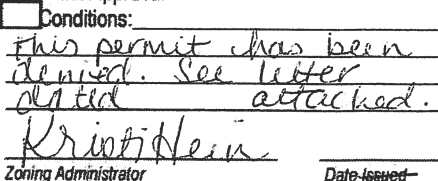 Conditions:
This permit has been
denied. See letter
dated attached.
Kristi Hein
Zoning Administrator Date Issued